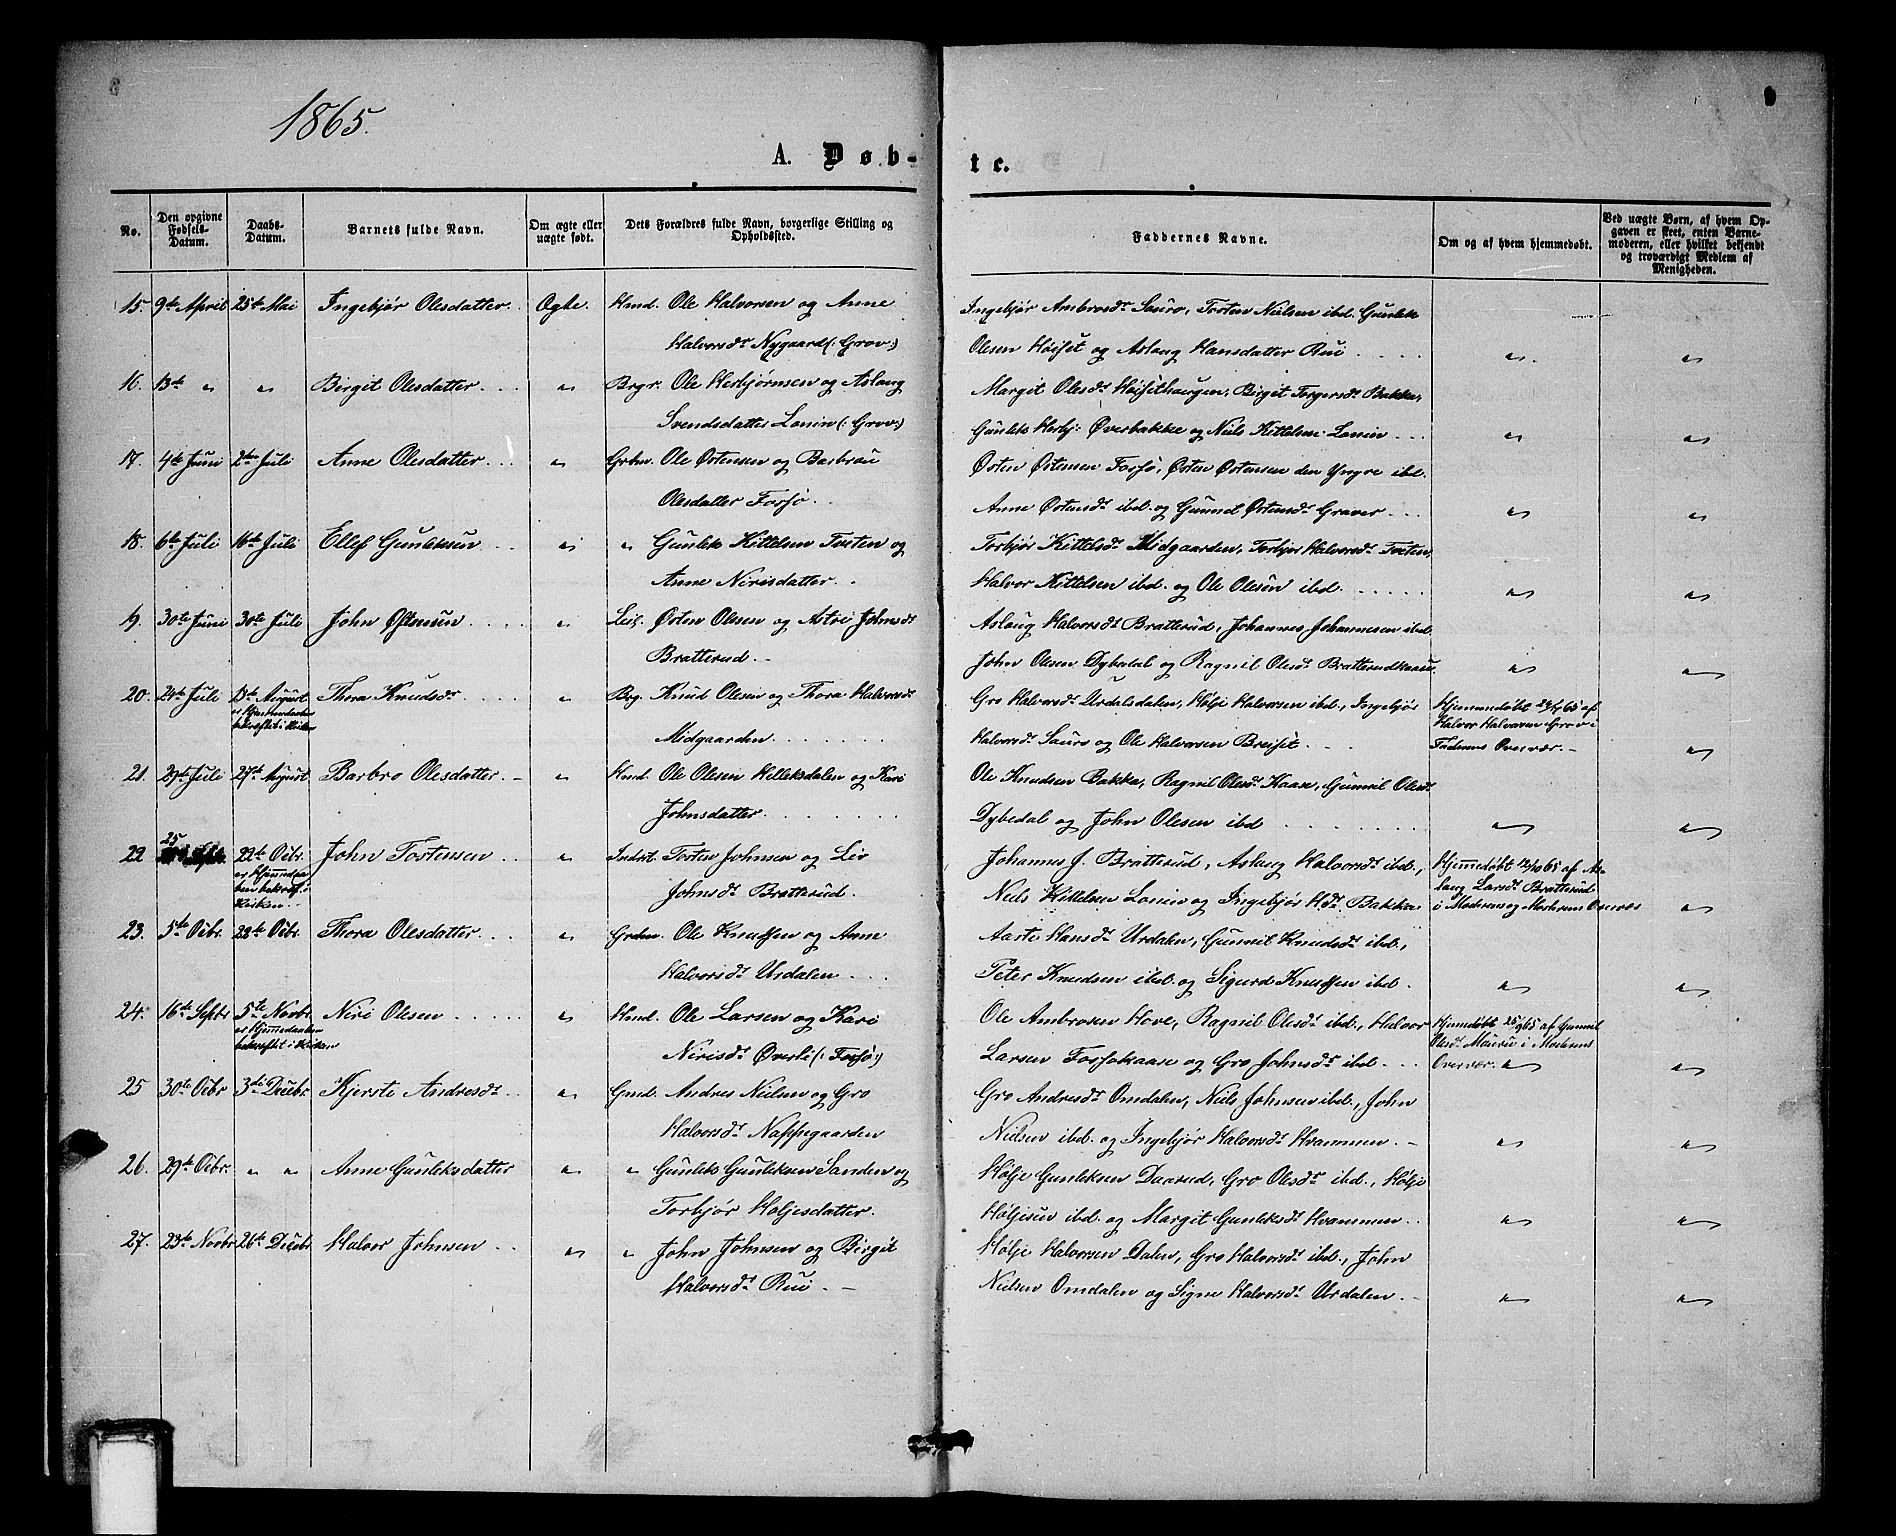 1865.
A. Døb-
te.
No.
Den opgivne Fødsels-Datum.
Daabs-Datum.
Barnets fulde Navn.
Om ægte eller uægte født.
Dets Forældres fulde Navn, borgerlige Stilling og Opholdssted.
Faddernes Navne.
Om og af hvem hjemmedøbt.
Ved uægte Børn, af hvem Opgaven er skeet, enten Barnemoderen, eller hvilket bekjendt og troværdigt Medlem af Menigheden.
15. 9de April 25de Mai Ingebjør Olesdatter. Ægte. Hmd. Ole Halvorsen og Anne
Halvorsdr Nygaard (: Grov:)
Ingebjør Ambrosdr Sauro, Torsten Nielsen ibd. Gunlek
Olesen Høiset og Aslaug Hansdatter Rui
16. 13de " " Birgit Olesdatter " Brgr. Ole Herbjørnsen og Aslaug
Svendsdatter Lonin (: Grov:)
Margit Olesdr Høisethaugen, Birgit Torgersdr Bakka,
Gunlek Herbj: Øverbakke og Niels Kittelsen Lonin
17. 4de Juni 2den Juli Anne Olesdatter " Grbm. Ole Østensen og Barbrau
Olesdatter Fossø
Østen Østensen Fossø, Østen Østensen den Yngre ibd.
Anne Østensdr ibd. og Gunnel Østensdr Graver
18. 6te Juli 16de Juli Ellef Gunleksen " " Gunlek Kittelsen Tveten og
Anne Nirisdatter
Torbjør Kittelsdr Midgaarden, Torbjør Halvorsdr Tveten,
Halvor Kittelsen ibd. og Ole Olesen ibd.
19. 30te Juni 30te Juli John Østensen " Leil. Østen Olesen og Astri Johnsdr
Bratterud
Aslaug Halvorsdr Bratterud, Johannes Johannesen ibd.
John Olesen Dybedal og Ragnil Olesdr Bratterudkaase
20. 24de Juli 13de August er Hjemmedaaben bekræftet i Kirken Thora Knudsdr " Brg. Knud Olesen og Thora Halvorsdr
Midgaarden
Gro Halvorsdr Urdalsdalen, Hølje Halvorsen ibd., Ingebjør
Halvorsdr Sauro og Ole Halvorsen Breiset
Hjemmedøbt 24/7 65 af
Halvor Halvorsen Grov i
Faderens Overvær.
21. 29de Juli 27de August Barbro Olesdatter " Hmd. Ole Olesen Helleksdalen og Kari
Johnsdatter
Ole Knudsen Bakka, Ragnil Olesdr Kaase, Gunnil Olesdr
Dybedal og John Olesen ibd
22 25 22de Octbr. er Hjemmedaaben bekræft. i Kirken. John Tostensen " Inderst. Tosten Johnsen og Liv
Johnsdr Bratterud.
Johannes J. Bratterud, Aslaug Halvorsdr ibd.,
Niels Kittelsen Lonin og Ingebjør Hdr Bakka
Hjemmedøbt 12/10 65 af Aslaug Larsdr Bratterud
i Moderens og Mosterens Overvær
23. 5te Octbr. 22de Octbr. Thora Olesdatter " Grdm. Ole Knudsen og Anne
Halvorsdr Urdalen
Aaste Hansdr Urdalen, Gunnil Knudsdr ibd.,
Peter Knudsen ibd. og Sigurd Knudsen ibd.
24. 16de Septbr 5te Novbr. er Hjemmedaaben bekræftet i Kirken Niri Olesen " Hmd. Ole Larsen og Kari
Nirisdr Øverli (: Fossø:)
Ole Ambrosen Hove, Ragnil Olesdr ibd., Halvor
Larsen Fossøkaase og Gro Johnsdr ibd.
Hjemmedøbt 25/9 65 af Gunnil
Olesdr i Moderens
Overvær.
25 30te Octbr 3de Decbr. Kjersti Andresdr " Gmd. Andres Nielsen og Gro
Halvorsdr Nappegaarden
Gro Andresdr Omdalen, Niels Johnsen ibd., John
Nielsen ibd. og Ingebjør Halvorsdr Hvammen.
26. 29de Octbr. " " Anne Gunleksdatter " " Gunlek Gunleksen Sanden og
Torbjør Høljesdatter.
Hølje Gunleksen Daarud, Gro Olesdr ibd., Hølje
Høljesen ibd. og Margit Gunleksdr Hvammen.
27. 23de Novbr 26de Decbr Halvor Johnsen " " John Johnsen og Birgit
Halvorsdr Rui.
Hølje Halvorsen Dalen, Gro Halvorsdr ibd., John
Nielsen Omdalen og Signe Halvorsdr Urdalen.